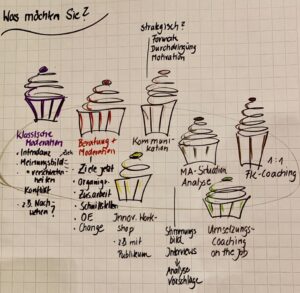 Was möchten Sie?
strategisch?
• Formate
Durchdringung
Motivation
Klassische
Moderation
• Intendanz
• Meinungsbild
verschieden-
heiten
Konflikt
• z.B. Nach-
wehen?
Beratung +
Moderation
• Ziele jetzt
• Organigr.
• Zus.arbeit
• Schnittstellen
• OE
• Change
Kommuni-
kation
Innov. Work-
shop
• z.B. mit
Publikum
MA-Situation
Analyse
Stimmungs
bild
Interviews
Analyse
Vorschläge
Umsetzungs-
Coaching
on the Job
1:1
FK-Coaching